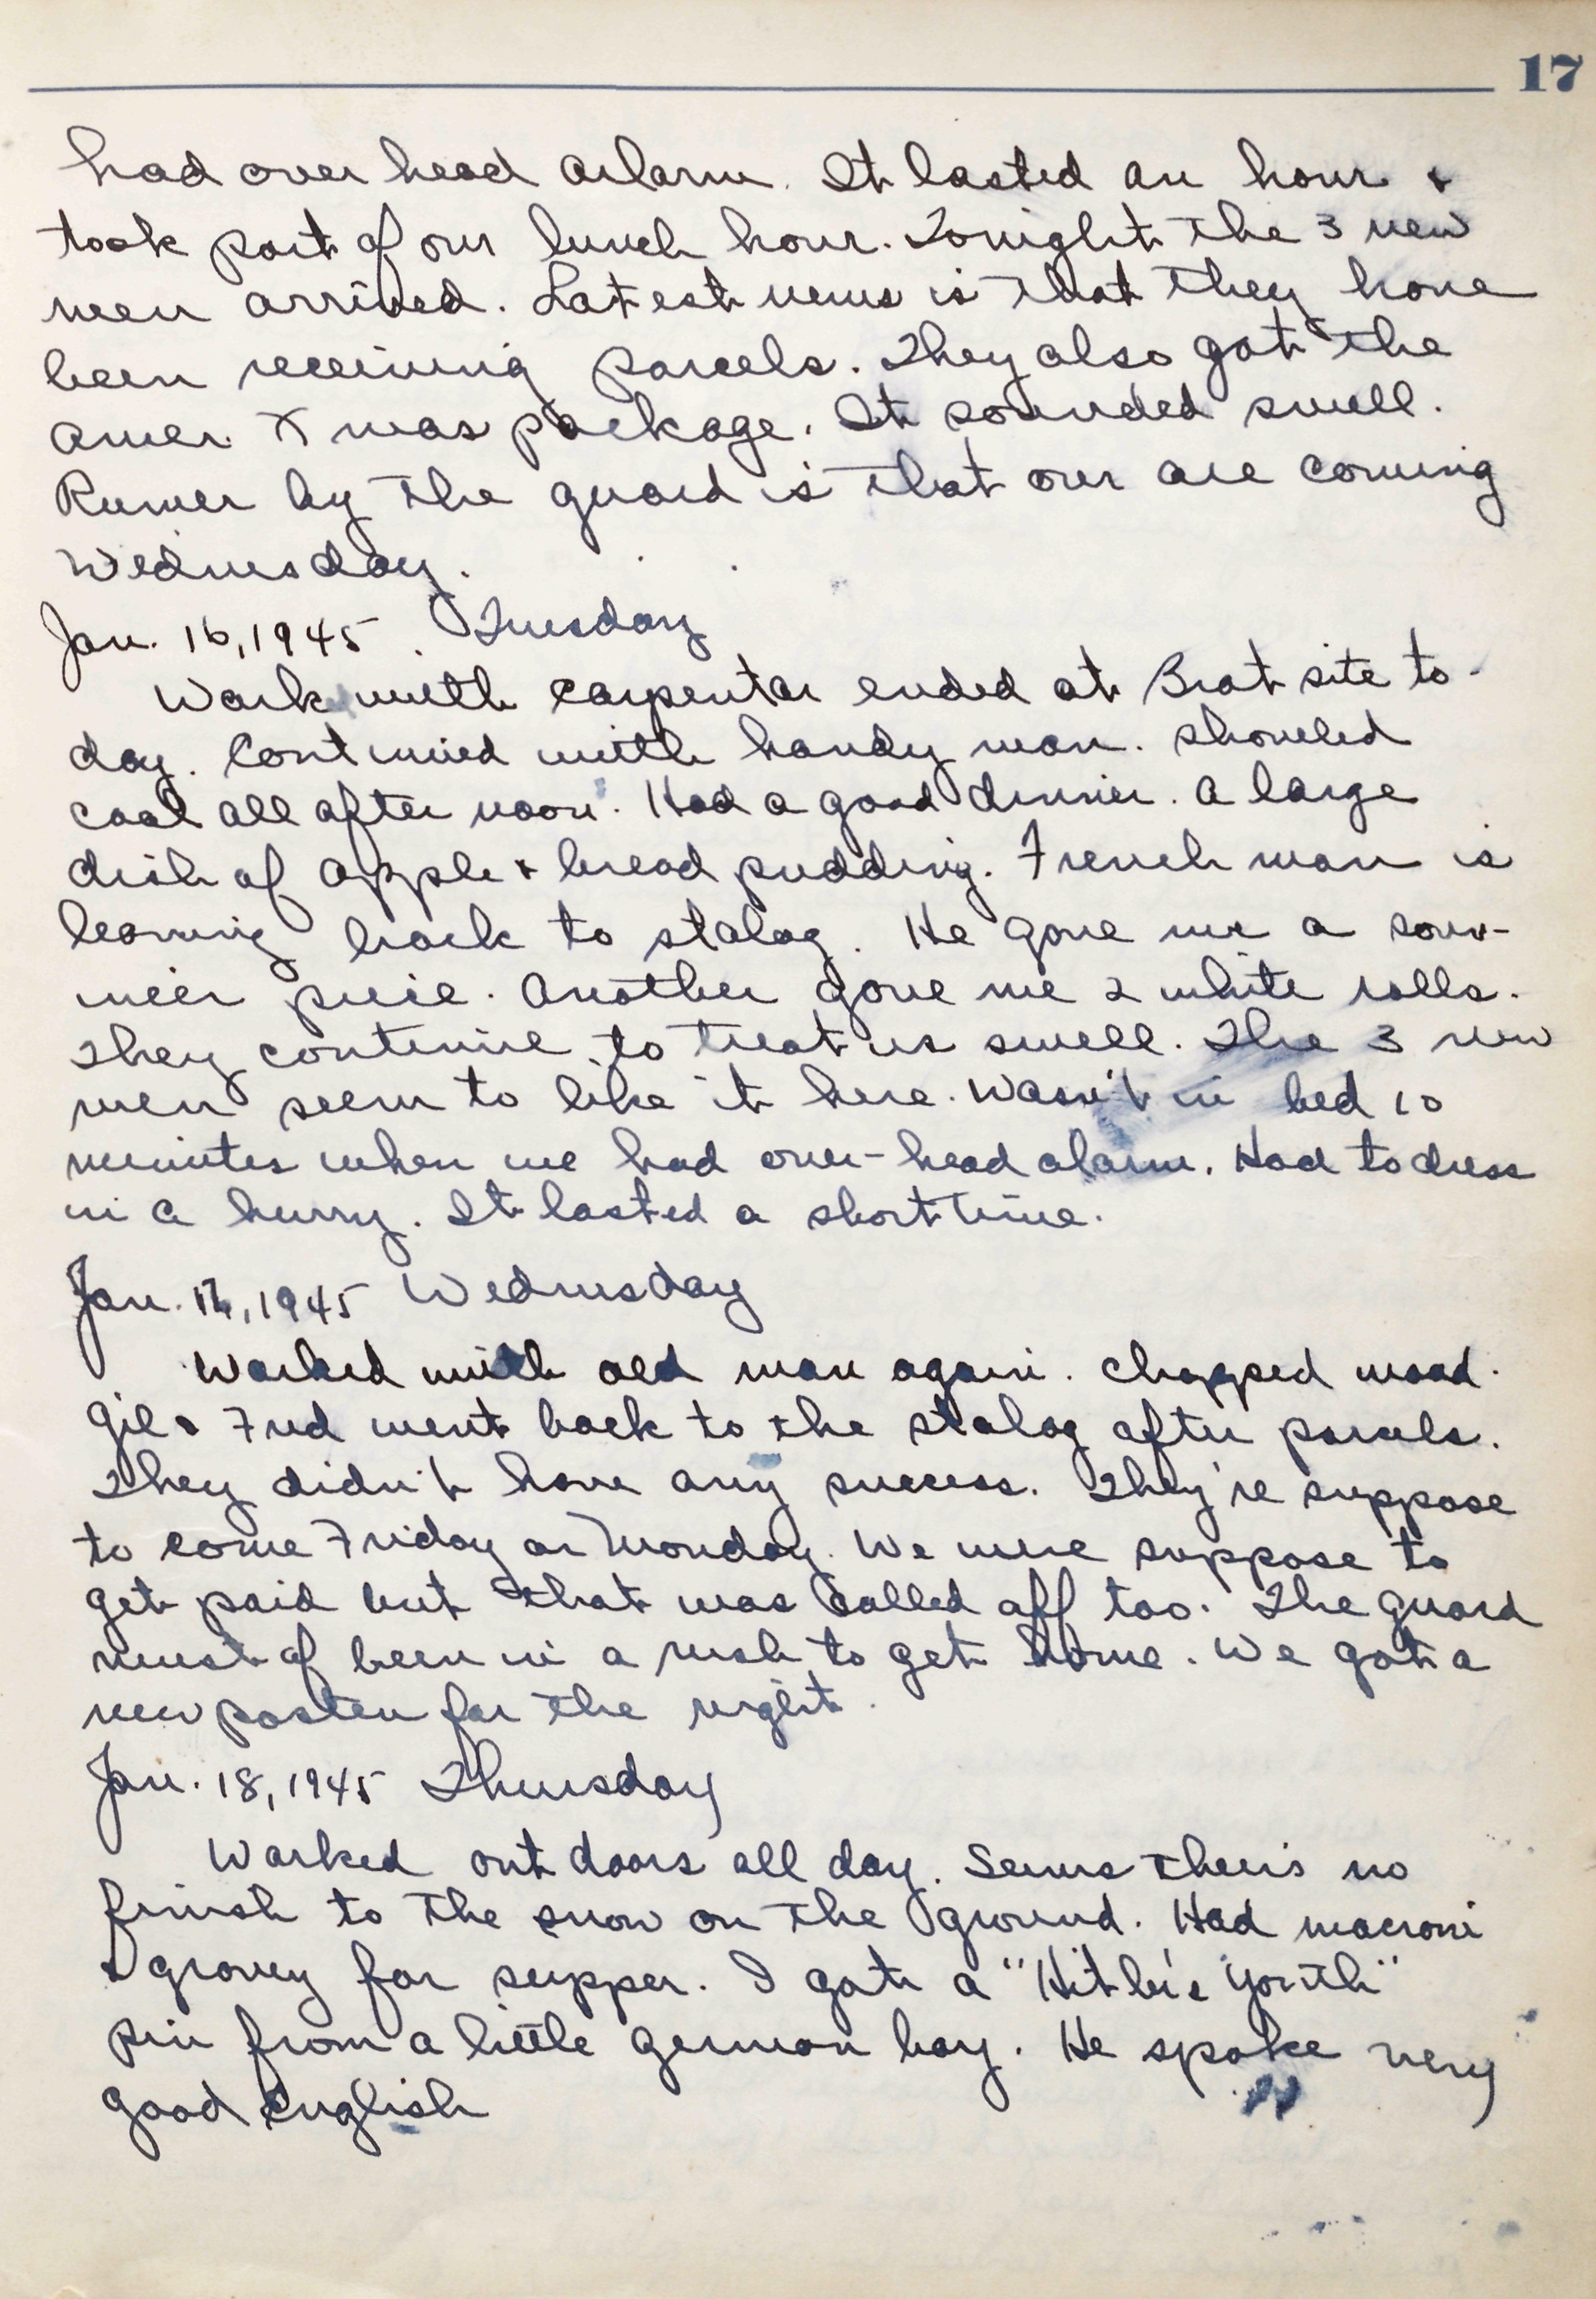 17
had over head alarm. It lasted an hour &
took part of our lunch hour. Tonight the 3 new
men arrived. Latest news is that they have
been receiving parcels. They also got the
Amer. Xmas package. It sounded swell.
Rumer by the guard is that our are coming
Wednesday.
Jan. 16, 1945. Tuesday
Work with carpentar ended at Brat site to-
day. Continued with handy man. Shoveled
coal all after noon. Had a good dinner. A large
dish of apple & bread pudding. French man is
leaving back to stalag. He gave me a souv-
nier piece. Another gave me 2 white rolls.
They continue to treat us swell. The 3 new
men seem to like it here. Wasn't in bed 10
minutes when we had over-head alarm. Had to dress
in a hurry. It lasted a short time.
Jan. 17, 1945 Wednesday
Worked with old man again. Chopped wood.
Gil & Fud went back to the stalag after parcels.
They didn't have any success. They're suppose
to come Friday or Monday. We were suppose to
get paid but that was called off too. The guard
must of been in a rush to get home. We got a
new posten for the night.
Jan. 18, 1945 Thursday
Worked out doors all day. Seems their's no
finish to the snow on the ground. Had macroni
& gravey for supper. I got a "Hitler's Youth"
pin from a little german boy. He spoke very
good english